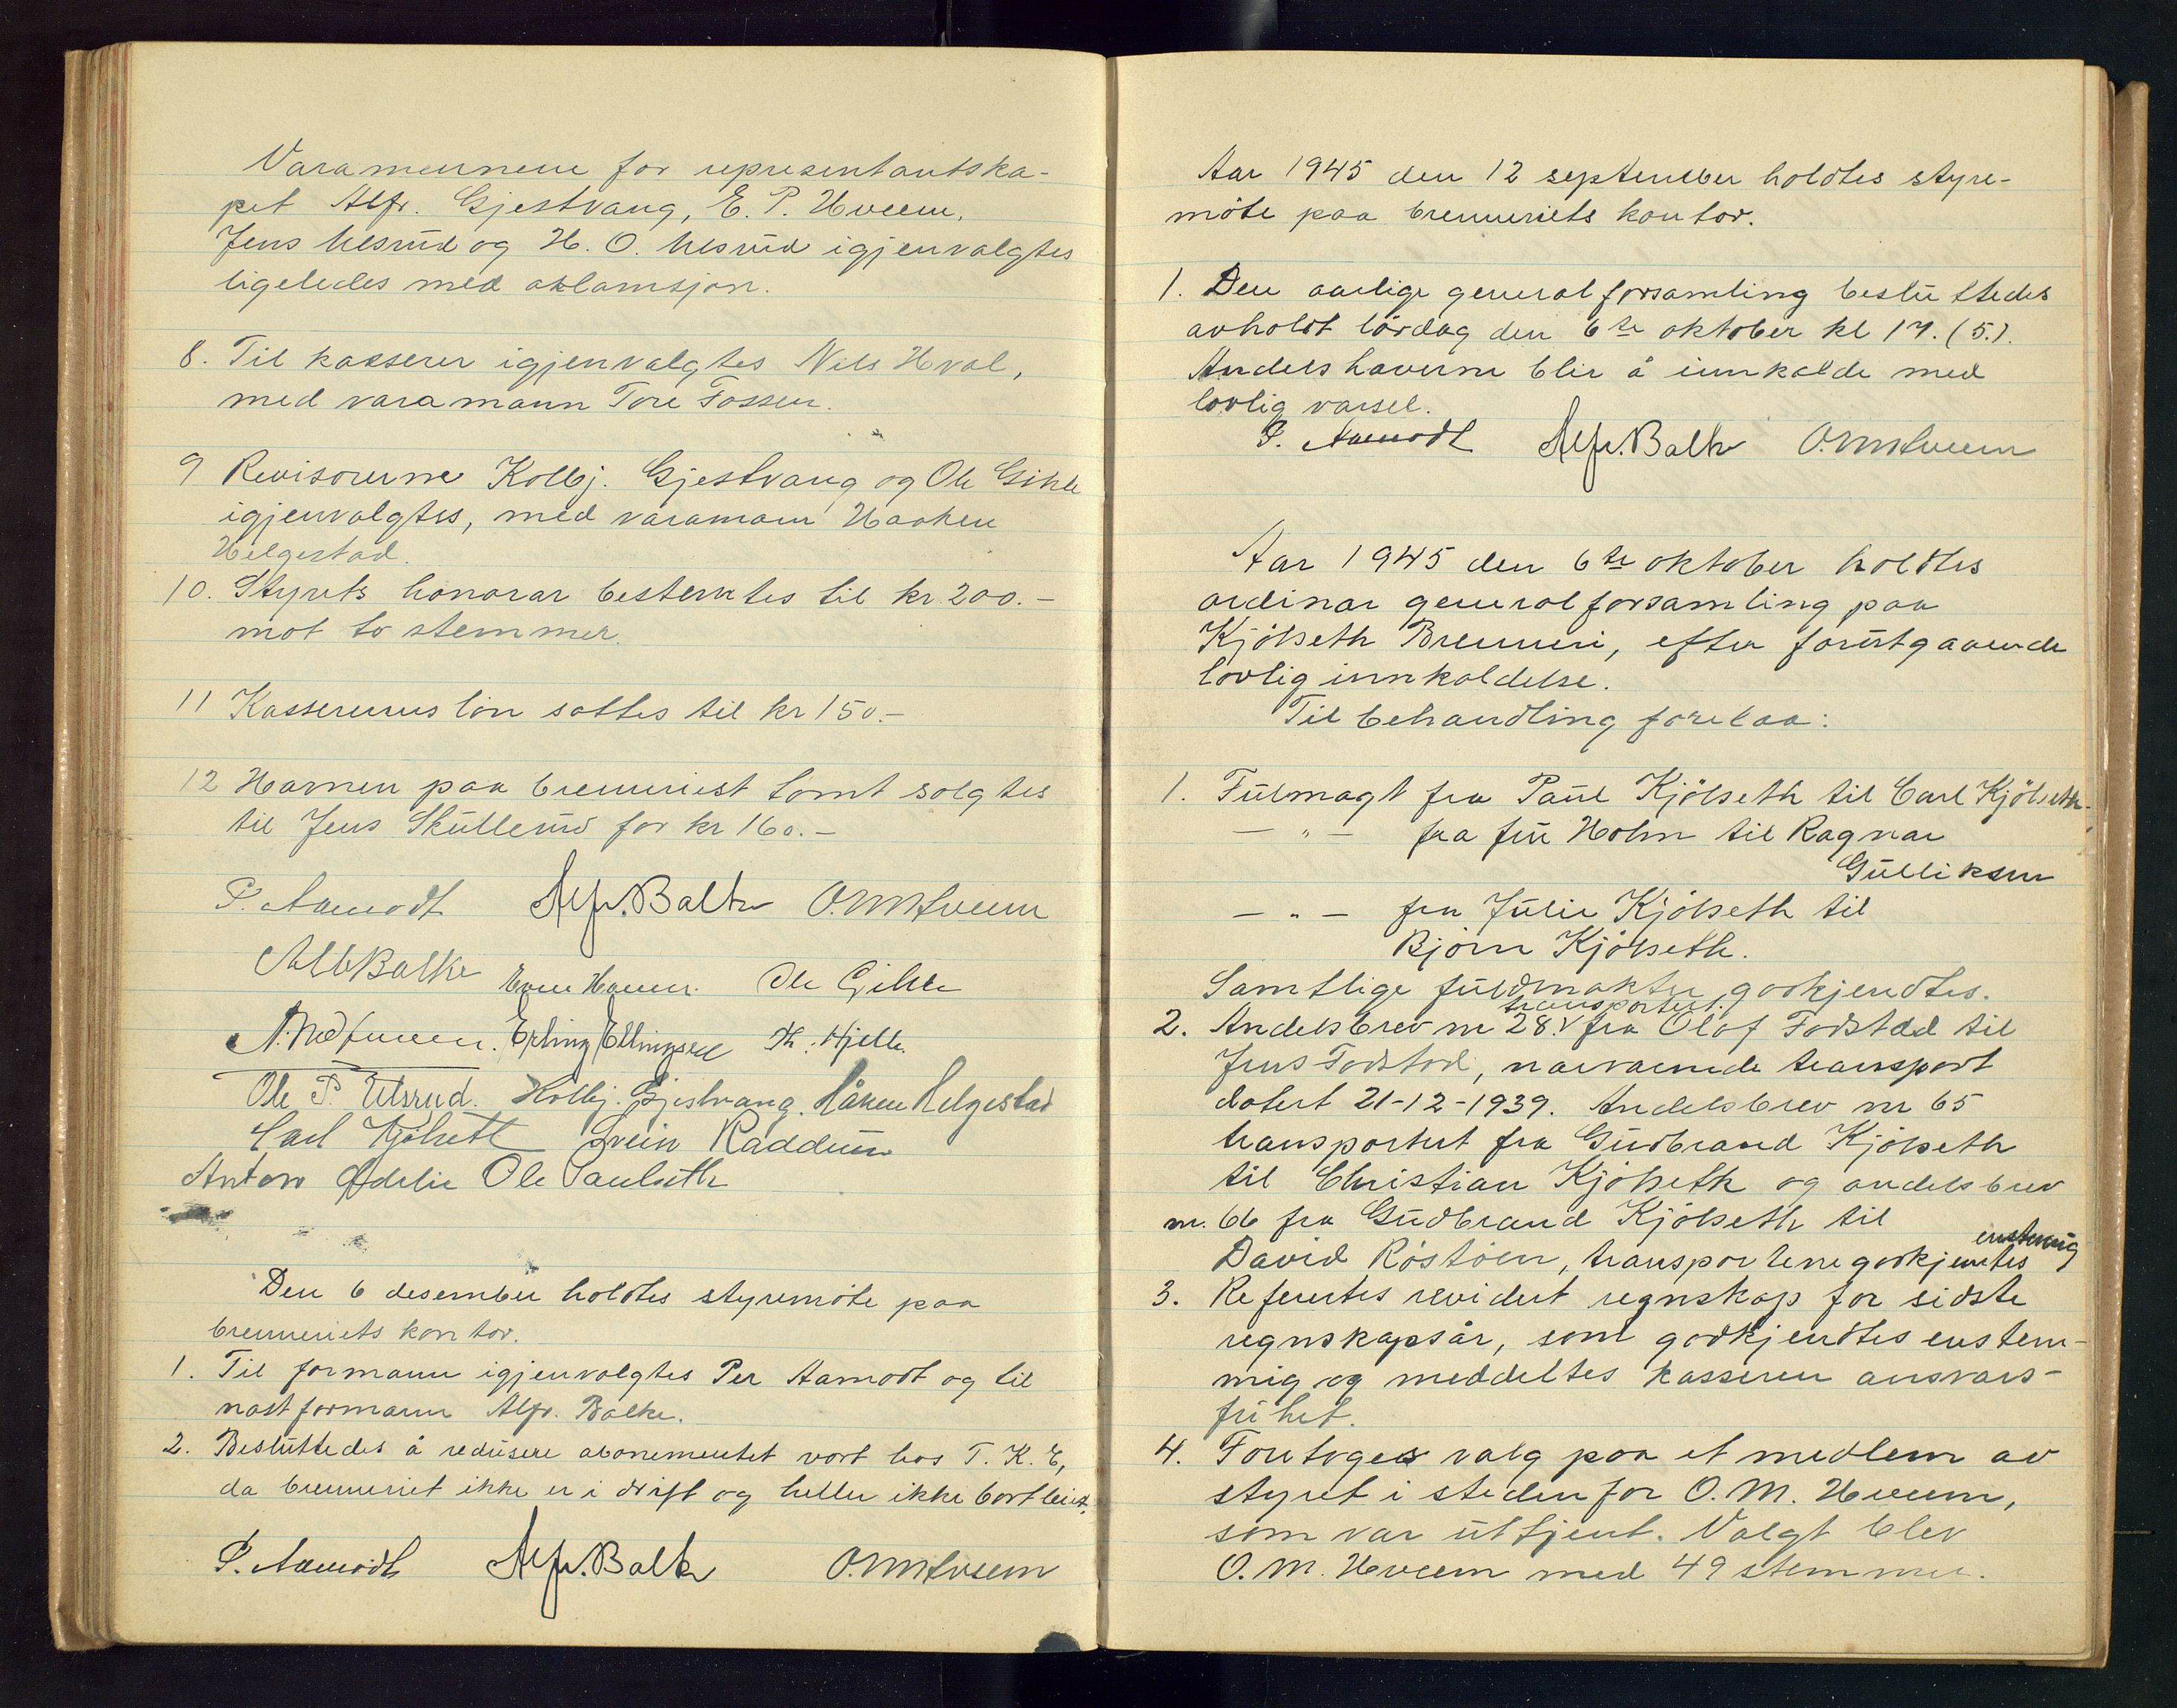 Varamennene for representantska-
pet Alfr. Gjestvang, E. P. Hveem,
Jens Ulsrud og H. O. Ulsrud igjenvalgtes
ligeledes med aklamsjon.
8. Til kasserer igjenvalgtes Nils Hval,
med varamann Tore Fossen.
9 Revisorerne Kolbj. Gjestvang og Ole Gihle
igjenvalgtes, med varamann Haaken
Helgestad.
10. Styrets honorar bestemtes til kr. 200.-
mot to stemmer.
11 Kassererens lön sattes til kr 150.-
12 Hamen paa brenneriest tomt solgtes
til Jens Skullerud for kr 160.-
P. Aamodt Alfr. Balke O. M. Hveem
Alb Balke Even Hamer. Ole Gihle
A. M. Hveem. Erling Ellingsen Th. Hjelle.
Ole P. Ulsrud. Kolbj. Gjestvang. Håken Helgestad
Carl Kjölseth Svein Raddum
Anton Ødelie Ole Paulseth
Den 6 desember holdtes styremöte paa
brenneriets kontor.
1. Til formann igjenvalgtes Per Aamodt og til
nestformann Alfr. Balke.
2. Besluttedes å redusere abonementet vort hos T. K. E,
da brenneriet ikke er i drift og heller ikke bortleiet.
P. Aamodt Alfr. Balke O. M. Hveem
Aar 1945 den 12 september holdtes styre-
möte paa brenneriets kontor.
1. Den aarlige generalforsamling besluttedes
avholdt lördag den 6te oktober kl 17. (5.).
Andelshaverne blir å innkalde med
lovlig varsel.
P. Aamodt Alfr. Balke O. M. Hveem
Aar 1945 den 6te oktober holdtes
ordinær generalforsamling paa
Kjölseth Brenneri, efter forutgaaende
lovlig innkaldelse.
Til behandling forelaa:
1. Fulmagt fra Paul Kjölseth til Carl Kjölseth.
— " — fra fru Holm til Ragnar
Gulliksen
— " — fra Julie Kjölseth til
Björn Kjölseth.
Samtlige fuldmakter godkjendtes.
transportert
2. Andelsbrev nr 28 V fra Olaf Fodstad til
Jens Fodstad, nærværende transport
datert 21-12-1939. Andelsbrev nr 65
transportert fra Gudbrand Kjölseth
til Christian Kjölseth og andelsbrev
nr. 66 fra Gudbrand Kjölseth til
enstemig
David Röstöen, transportene godkjentes
3. Refertes revidert regnskap for sidste
regnskapsår, som godkjendtes enstem-
mig og meddeltes kasseren ansvars-
frihet.
4. Foretoges valg paa et medlem av
styret i steden for O. M. Hveem,
som var uttjent. Valgt blev
O. M. Hveem med 49 stemmer.